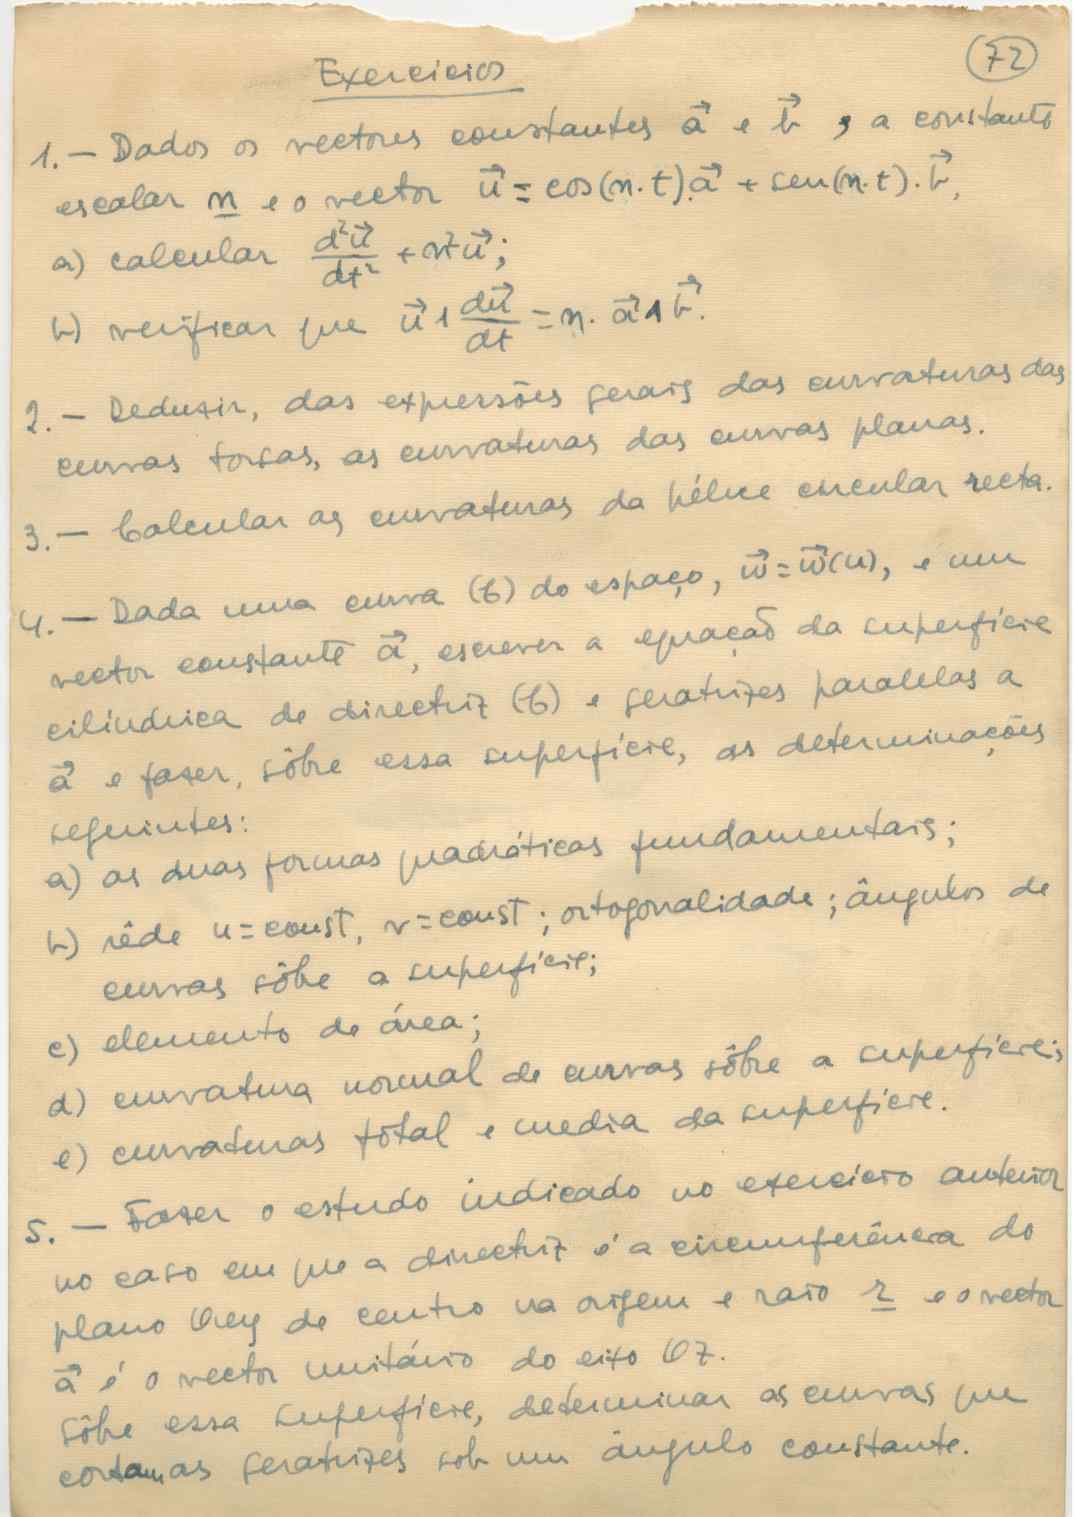 72
Exercícios
1. — Dados os vectores constantes a⃗ e b⃗, a constante
escalar n e o vector u⃗ = cos(n.t).a⃗ + sen(n.t).b⃗,
a) calcular d²u⃗/dt² + n²u⃗;
b) verificar que u⃗ ∧ du⃗/dt = n. a⃗ ∧ b⃗.
2. — Deduzir, das expressões gerais das curvaturas das
curvas torsas, as curvaturas das curvas planas.
3. — Calcular as curvaturas da hélice circular recta.
4. — Dada uma curva (C) do espaço, w⃗ = w⃗(u), e um
vector constante a⃗, escrever a equação da superfície
cilíndrica de directriz (C) e geratrizes paralelas a
a⃗ e fazer, sôbre essa superfície, as determinações
seguintes:
a) as duas formas quadráticas fundamentais;
b) rêde u = const, v = const; ortogonalidade; ângulos de
curvas sôbre a superfície;
c) elemento de área;
d) curvatura normal de curvas sôbre a superfície;
e) curvaturas total e media da superfície.
5. — Fazer o estudo indicado no exercício anterior
no caso em que a directriz é a circunferência do
plano Oxy de centro na origem e raio r e o vector
a⃗ é o vector unitário do eixo Oz.
Sôbre essa superfície, determinar as curvas que
cortam as geratrizes sob um ângulo constante.